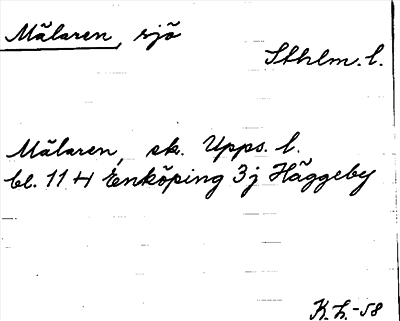 Mälaren, sjö
Sthlm. l.
Mälaren, ek. Upps. l.
bl. 11 H Enköping 3 j Häggeby
K. L. -58